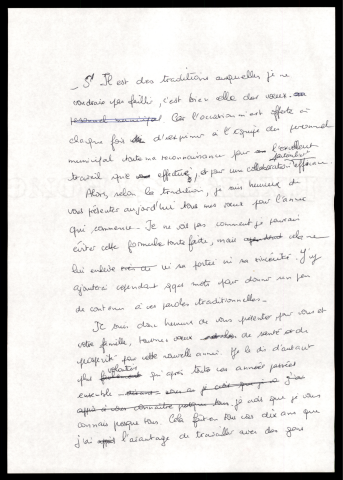 _ S'Il est des traditions auxquelles je ne
voudrais pas faillir, c'est bien celle des vœux. au
personnel municipal Car l'occasion m'est offerte à
chaque fois de d'exprimer à l'équipe du personnel
municipal toute ma reconnaissance pour l'excellent
travail que effectué, et pour une collaboration permanente efficace
Alors, selon la tradition, je suis heureux de
vous présenter aujourd'hui tous mes vœux pour l'année
qui commence. Je ne sais pas comment je pourrais
éviter cette formule toute faite, mais cela ne
lui enlève ni sa portée ni sa sincérité. J'y
ajouterai cependant quelques mots pour donner un peu
de contenu à ces paroles traditionnelles.
Je suis donc heureux de vous présenter pour vous et
votre famille, tous mes vœux de santé et de
prospérité pour cette nouvelle année. Je le dis d'autant
plus volontiers qu'après toutes ces années passées
ensemble j'ai
appris à vous connaître presque tous. je crois que je vous
connais presque tous. Cela fait en tous cas dix ans que
j'ai l'avantage de travailler avec des gens